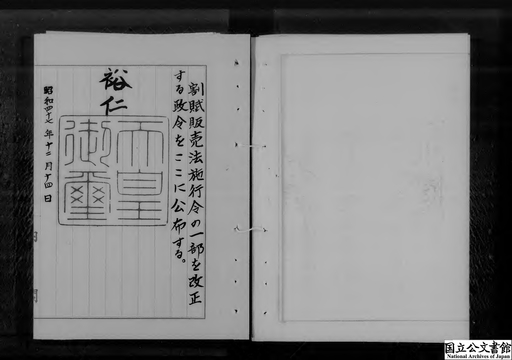 割賦販売法施行令の一部を改正
する政令をここに公布する。
裕仁
天皇
御璽
昭和四十七年十二月十四日
国立公文書館
National Archives of Japan